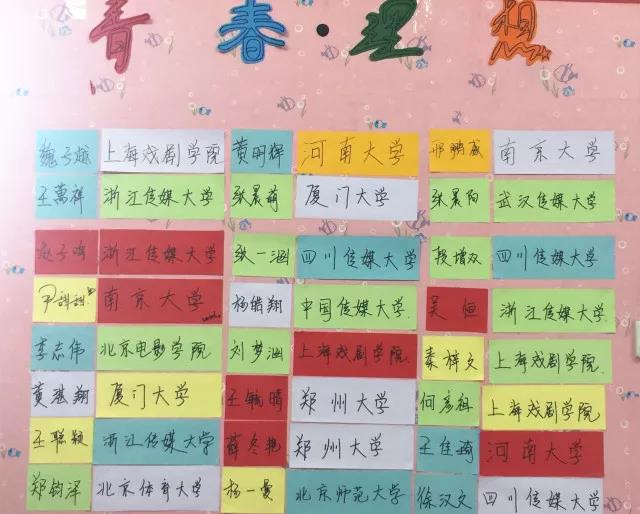 青春·理想
魏子越 上海戏剧学院 黄明辉 河南大学 邢鹏威 南京大学
王万祥 浙江传媒大学 张晨萌 厦门大学 张晨阳 武汉传媒大学
浙江传媒大学 张一涵 四川传媒大学 段增双 四川传媒大学
尹甜甜 南京大学 杨皓翔 中国传媒大学. 吴恒 浙江传媒大学
李志伟 北京电影学院 刘梦涵 上海戏剧学院. 秦梓文 上海戏剧学院.
黄湛翔 厦门大学 王毓晴 郑州大学 何彦祖 上海戏剧学院
王聪颖 浙江传媒大学 薛冬艳 郑州大学 王佳琦 河南大学
郑钧泽 北京体育大学 杨一曼 北京师范大学 徐汉文 四川传媒大学